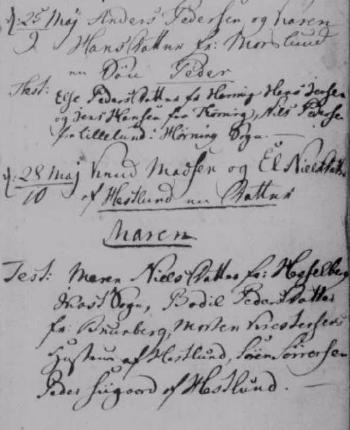 d: 25 Maj Anders Pedersen og Karen
9 Hans Datter fr: Morslund
en Søn Peder
Test: Else Peders Datter fra Hørning Hans Jensen
og Jens Hansen fra Hørning, Nils Pederse
fr Lillelund i Hørning Sogn.
d: 28 Maj Knud Madsen og El Niels Datter
10 af Hestlund en Datter
Maren
Test: Maren Niels Datter fr: Hesselberg
Sogn, Bodil Peders Datter
fr: Brunberg, Morten
Hustrue af Hestlund, Søren Sørensen
Peder af Hestlund.